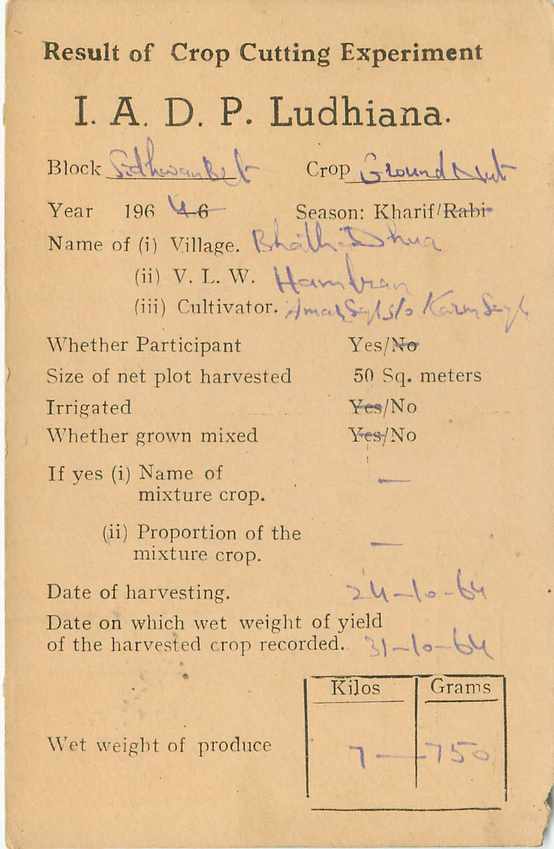 Result of Crop Cutting Experiment
I. A. D. P. Ludhiana.
Block Sidhwan Bet Crop Ground Nut
Year 196 4-6
Season: Kharif/Rabi
Name of (i) Village. Bhatha Dhua
(ii) V. L. W. Hambran
(iii) Cultivator. Amar Singh s/o Karm Singh
Whether Participant Yes/No
Size of net plot harvested 50 Sq. meters
Irrigated Yes/No
Whether grown mixed Yes/No
If yes (i) Name of
mixture crop. —
(ii) Proportion of the
mixture crop. —
Date of harvesting. 24-10-64
Date on which wet weight of yield
of the harvested crop recorded. 31-10-64
Kilos Grams
Wet weight of produce 7 — 750